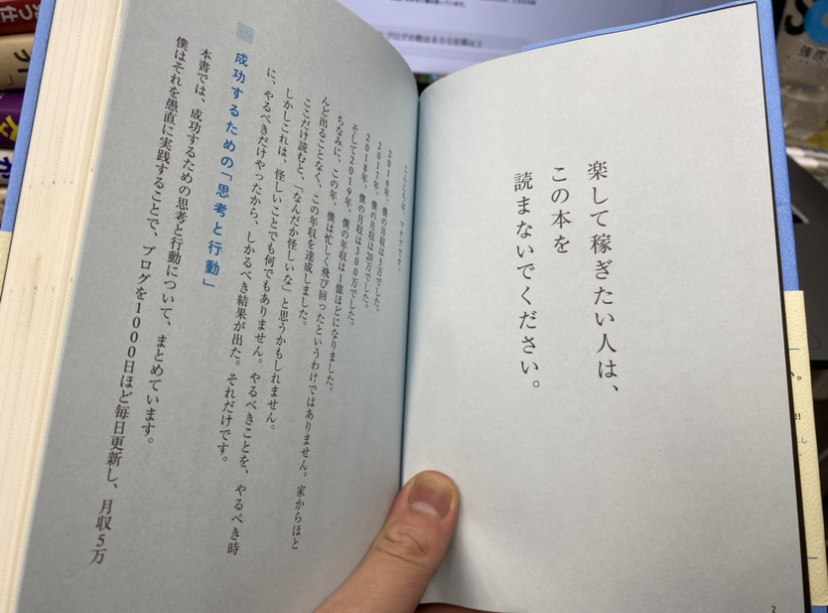 楽して稼ぎたい人は、
この本を
読まないでください。
2
こんにちは、マナブです。
2016年、僕の月収は5万でした。
2017年、僕の月収は20万でした。
2018年、僕の月収は300万でした。
そして2019年、僕の年収は1億ほどになりました。
ちなみに、この年、僕は忙しく飛び回ったというわけではありません。家からほと
んど出ることなく、この年収を達成しました。
ここだけ読むと、「なんだか怪しいな」と思うかもしれません。
しかしこれは、怪しいことでも何でもありません。やるべきことを、やるべき時
に、やるべきだけやったから、しかるべき結果が出た。それだけです。
成功するための「思考と行動」
本書では、成功するための思考と行動について、まとめています。
僕はそれを愚直に実践することで、ブログを1000日ほど毎日更新し、月収5万